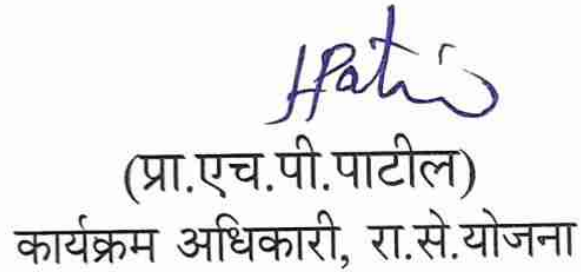 HPatil
(प्रा.एच.पी.पाटील)
कार्यक्रम अधिकारी, रा.से.योजना